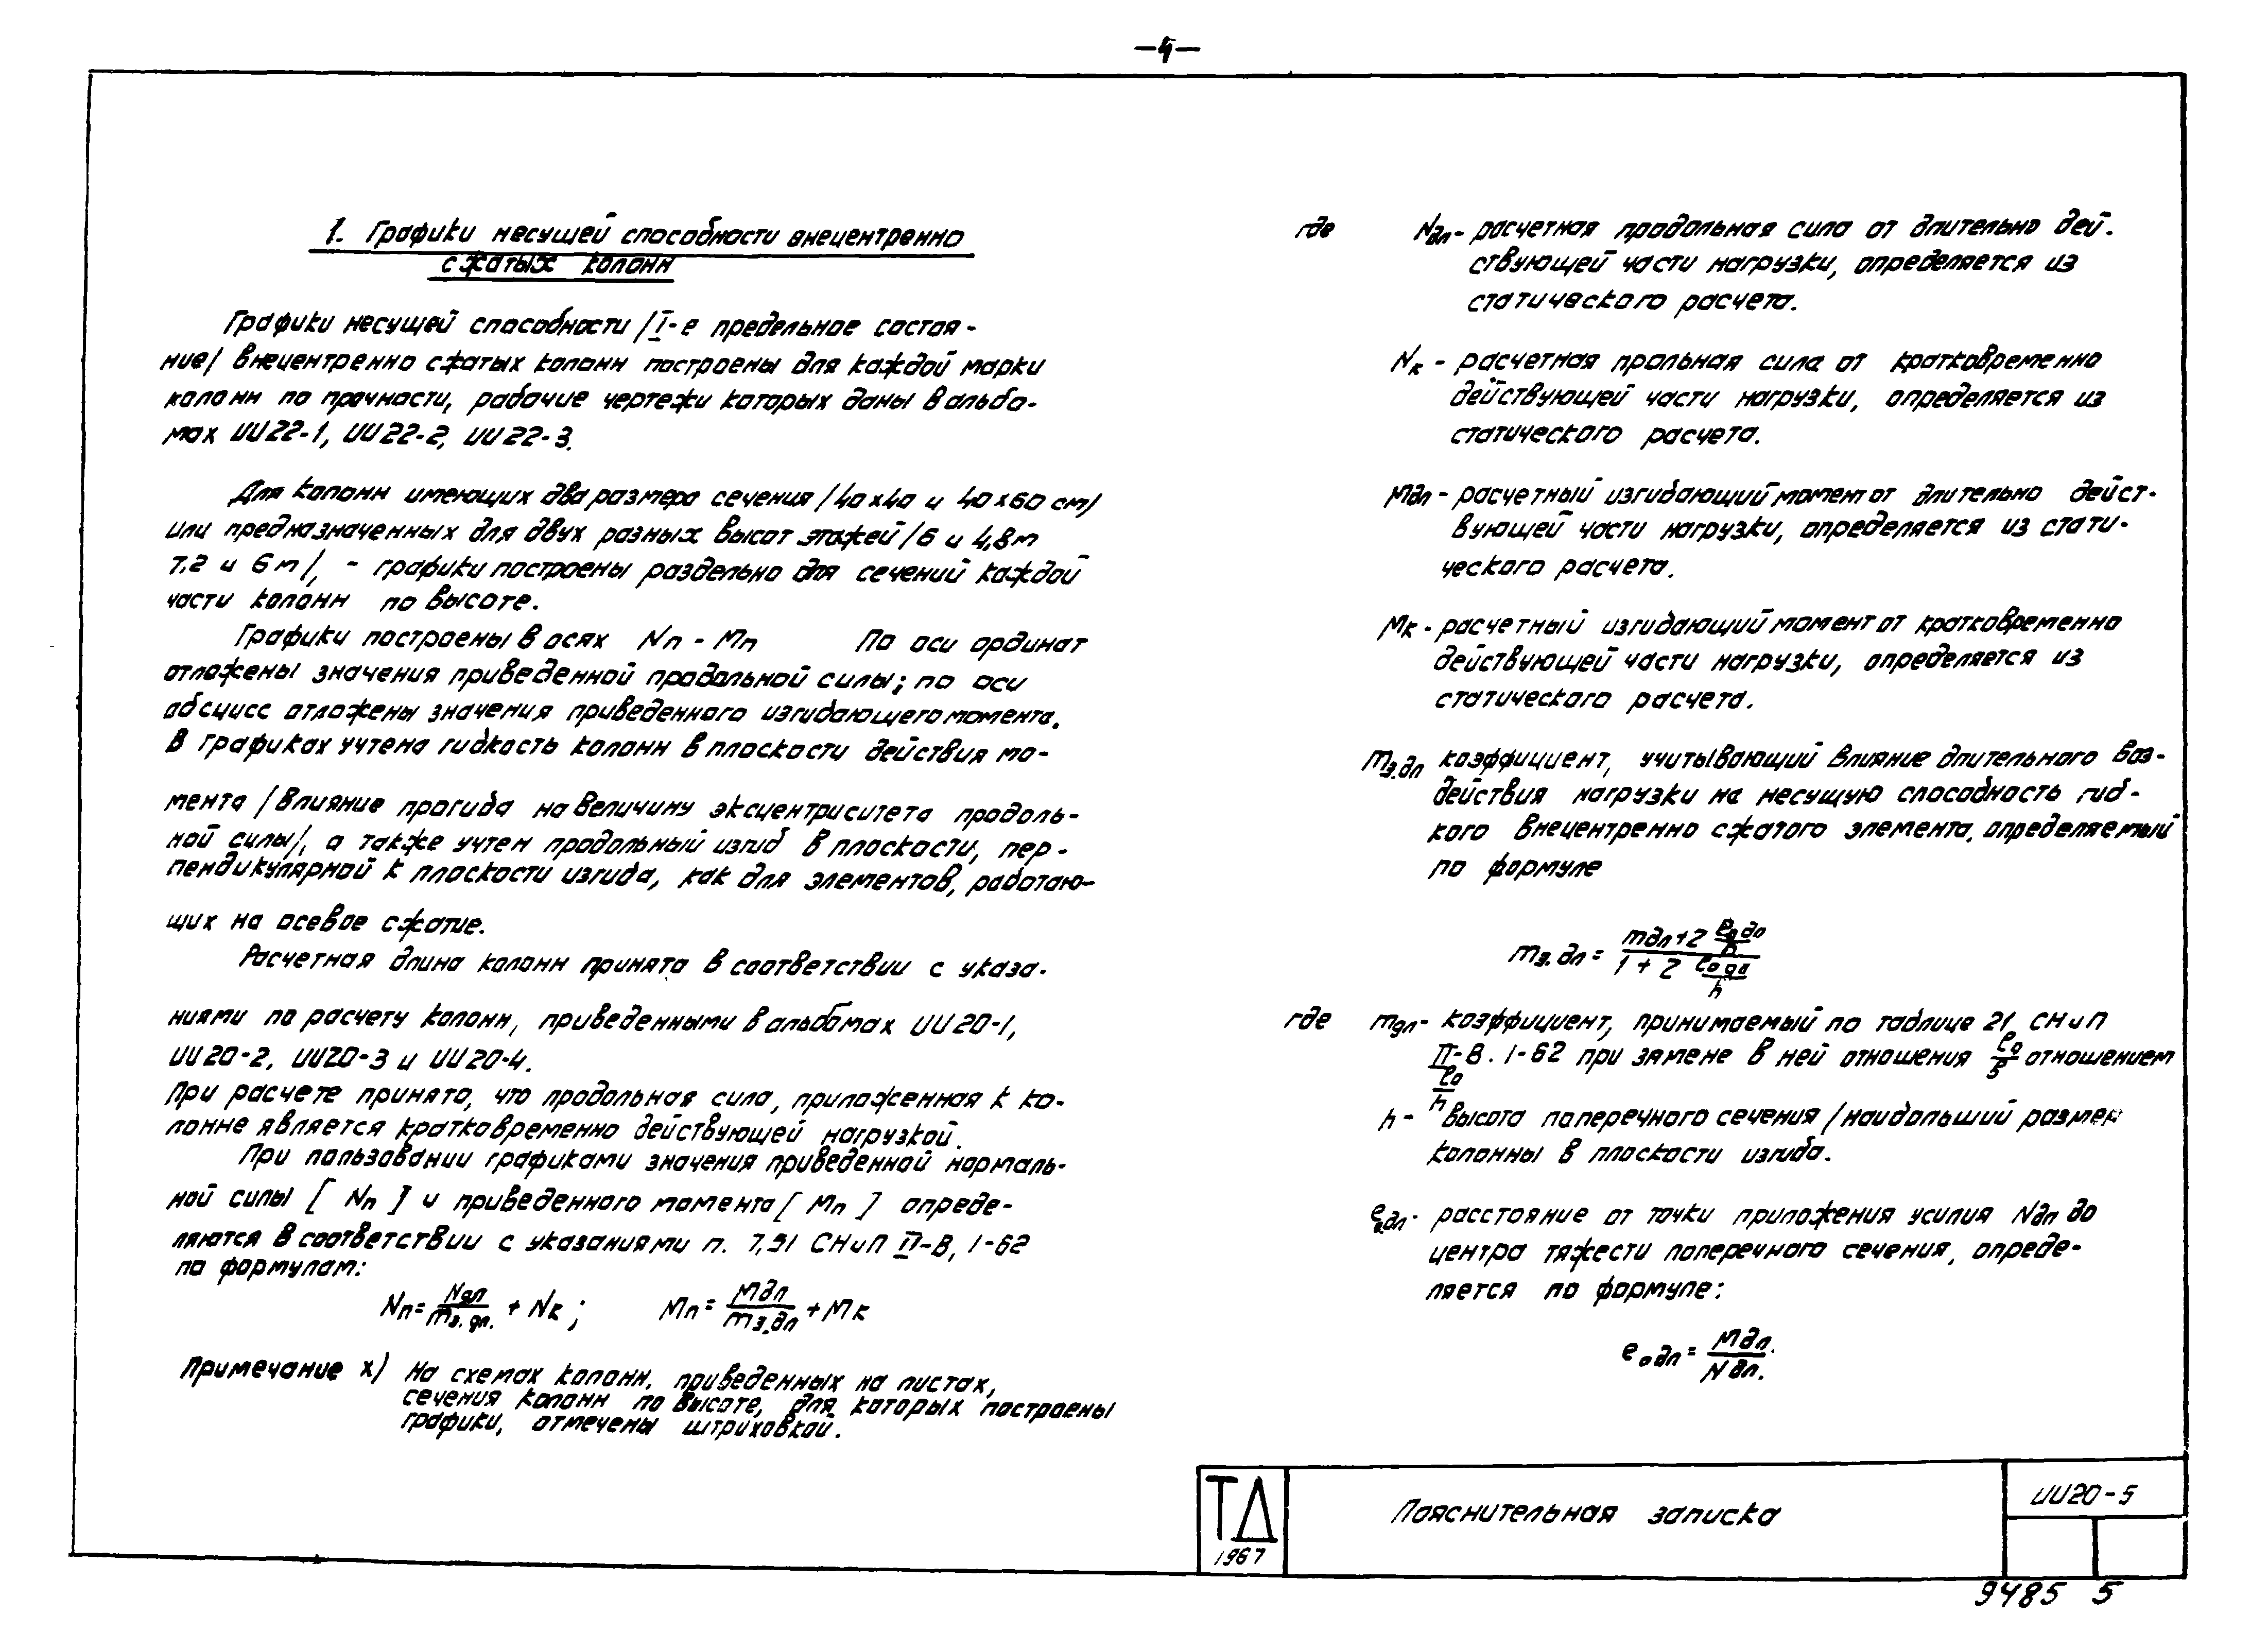 —4—
1. Графики несущей способности внецентренно
сжатых колонн
Графики несущей способности /I-е предельное состоя-
ние/ внецентренно сжатых колонн построены для каждой марки
колонн по прочности, рабочие чертежи которых даны в альбо-
мах ИИ22-1, ИИ22-2, ИИ22-3.
Для колонн имеющих два размера сечения /40х40 и 40х60 см/
или предназначенных для двух разных высот этажей /6 и 4,8м
7.2 и 6м/, - графики построены раздельно для сечений каждой
части колонн по высоте.
Графики построены в осях Nп - Мп По оси ординат
отложены значения приведенной продольной силы; по оси
абсцисс отложены значения приведенного изгибающего момента.
В графиках учтена гибкость колонн в плоскости действия мо-
мента /влияние прогиба на величину эксцентриситета продоль-
ной силы/, а также учтен продольный изгиб в плоскости, пер-
пендикулярной к плоскости изгиба, как для элементов, работаю-
щих на осевое сжатие.
Расчетная длина колонн принята в соответствии с указа-
ниями по расчету колонн, приведенными в альбомах ИИ20-1,
ИИ20-2, ИИ20-3 и ИИ20-4.
При расчете принято, что продольная сила, приложенная к ко-
лонне является кратковременно действующей нагрузкой.
При пользовании графиками значения приведенной нормаль-
ной силы [ Nп ] и приведенного момента [ Мп ] опреде-
ляются в соответствии с указаниями п. 7,91 СНиП II-В, 1-62
по формулам:
Nп = Nдл / mэ.дл. + Nк ; Мп = Мдл / mэ.дл + Мк
Примечание х) На схемах колонн, приведенных на листах,
сечения колонн по высоте, для которых построены
графики, отмечены штриховкой.
где Nдл - расчетная продольная сила от длительно дей-
ствующей части нагрузки, определяется из
статического расчета.
Nк - расчетная прольная сила от кратковременно
действующей части нагрузки, определяется из
статического расчета.
Мдл - расчетный изгибающий момент от длительно дейст-
вующей части нагрузки, определяется из стати-
ческого расчета.
Мк - расчетный изгибающий момент от кратковременно
действующей части нагрузки, определяется из
статического расчета.
mэ.дл коэффициент, учитывающий влияние длительного воз-
действия нагрузки на несущую способность гиб-
кого внецентренно сжатого элемента, определяемый
по формуле
mэ.дл = (mдл + 2 e₀дл/h) / (1 + 2 e₀дл/h)
где mдл - коэффициент, принимаемый по таблице 21 СНиП
II-В. 1-62 при замене в ней отношения ℓ₀/б отношением
ℓ₀/h
h - высота поперечного сечения /наибольший размер
колонны в плоскости изгиба.
e₀дл - расстояние от точки приложения усилия Nдл до
центра тяжести поперечного сечения, опреде-
ляется по формуле:
e₀дл = Мдл. / Nдл.
ТД
1967
Пояснительная записка
ИИ20-5
9485 5